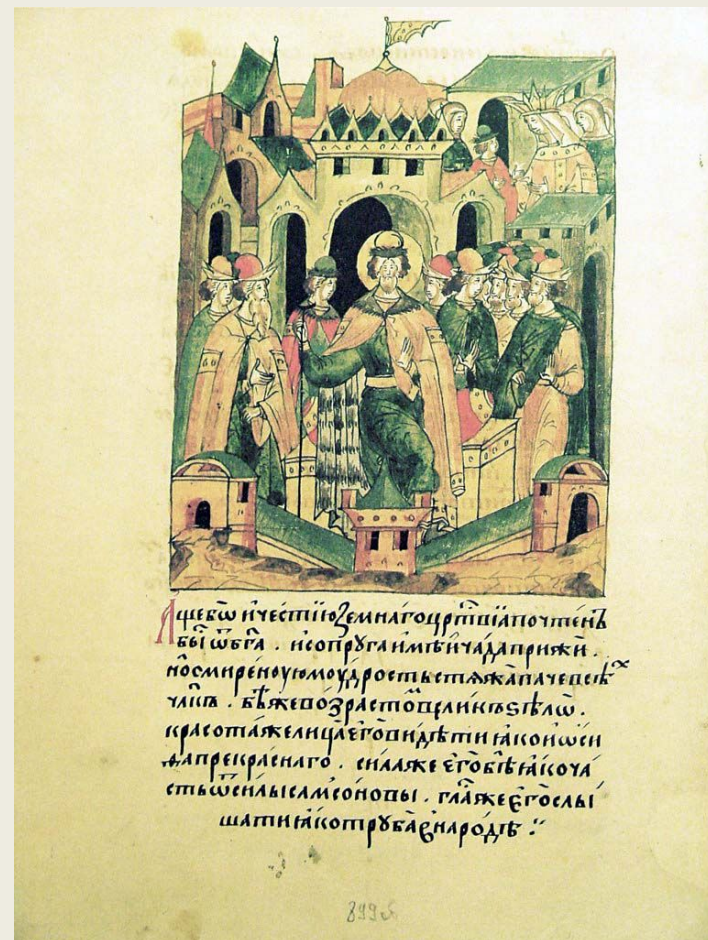 Аще бѡ и честїю земнагѡ црⷭ҇твїа почтенъ
бы́ ѿ бг҃а . и сопруга имѣ и чада прижи́ .
но смире́ноую моу́дрость стѧжа̀ паче всѣⷯ
чл҃къ . бѣ́ же во́зрастоⷨ великъ ѕѣлѡ .
красота́ же лица̀ єго̀ ви́дѣти ꙗко иѡси
фа прекраснаго . сила же єго̀ бѣ̀ ꙗко ча́
сть ѿ силы самсоновы . гла́ же єго̀ слы́
шати ꙗко труба̀ в народѣ ჻
899